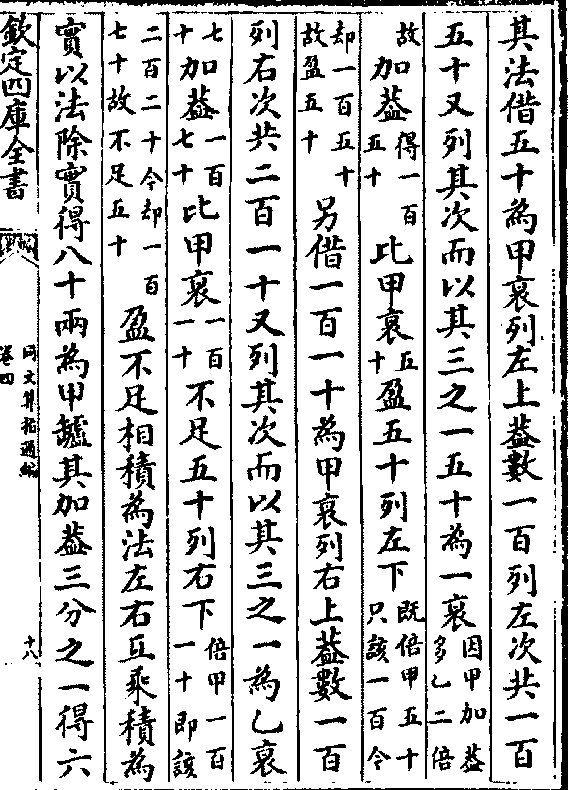 其法借五十為甲裒列左上葢數一百列左次共一百
五十又列其次而以其三之一五十為一裒因甲加葢多乙二倍
故加葢得一百五十比甲裒五十盈五十列左下既倍甲五十只該一百今
却一百五十故盈五十另借一百一十為甲裒列右上葢數一百
列右次共二百一十又列其次而以其三之一為乙裒
七十加葢一百七十比甲裒一百一十不足五十列右下倍甲一百一十即該
二百二十今却一百七十故不足五十盈不足相積為法左右互乘積為
實以法除實得八十兩為甲罏其加葢三分之一得六
欽定四庫全書
同文算指通編
卷四
十八